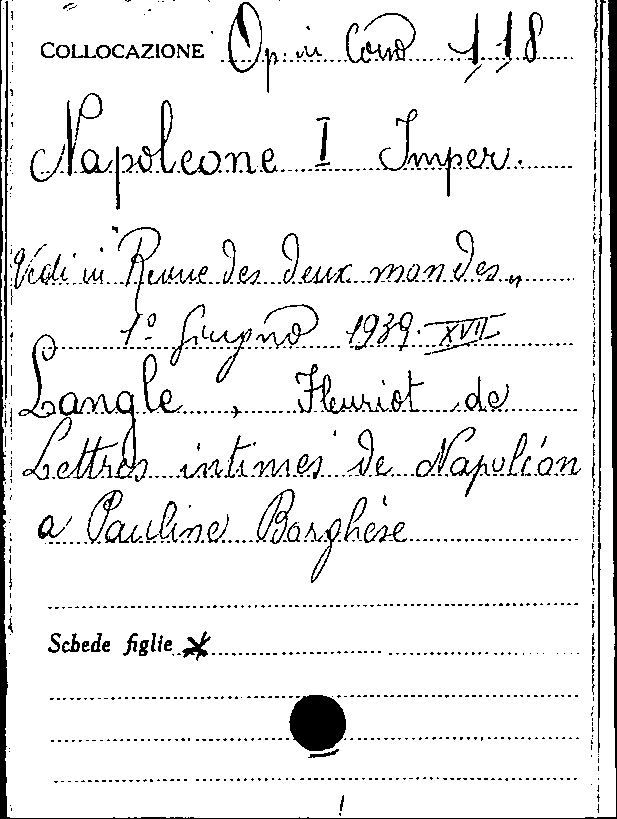 COLLOCAZIONE Op. in Corso 1,1,8
Napoleone I Imper.
Vedi in "Revue des deux mondes"
1º Giugno 1939. XVII
Langle, Fleuriot de
Lettres intimes de Napoléon
a Pauline Borghèse
Schede figlie *